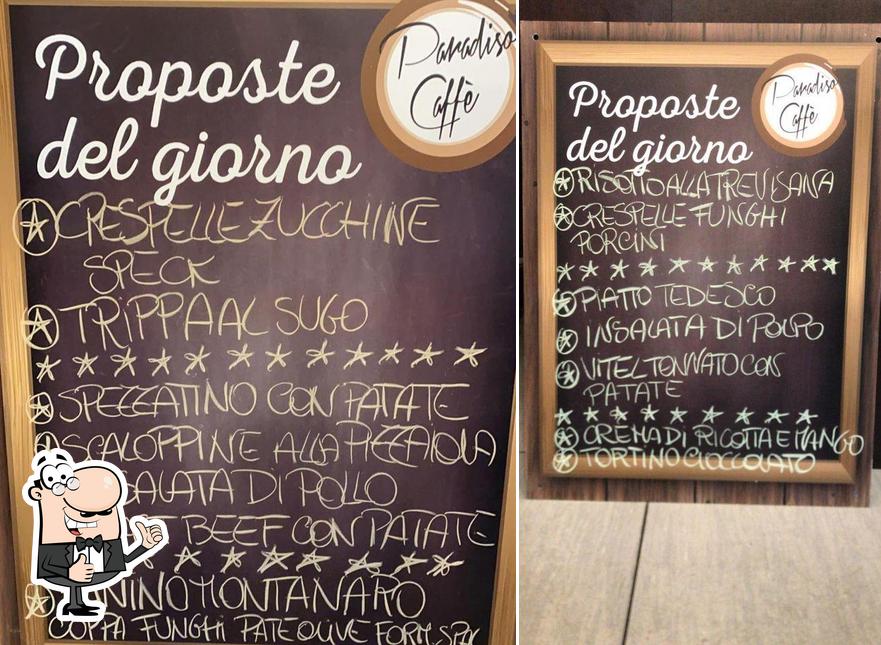 Proposte
del giorno
Paradiso
Caffè
CRESPELLE ZUCCHINE
SPECK
TRIPPA AL SUGO
SPEZZATINO CON PATATE
SCALOPPINE ALLA PIZZAIOLA
SALATA DI POLLO
BEEF CON PATATE
NINO MONTANARO
COPPA FUNGHI PATE OLIVE FORM. SPEK
Proposte
del giorno
Paradiso
Caffè
RISOTTO ALLA TREVISANA
CRESPELLE FUNGHI
PORCINI
PIATTO TEDESCO
INSALATA DI POLPO
VITEL TONNATO CON
PATATE
CREMA DI RICOTTA E MANGO
TORTINO CIOCCOLATO